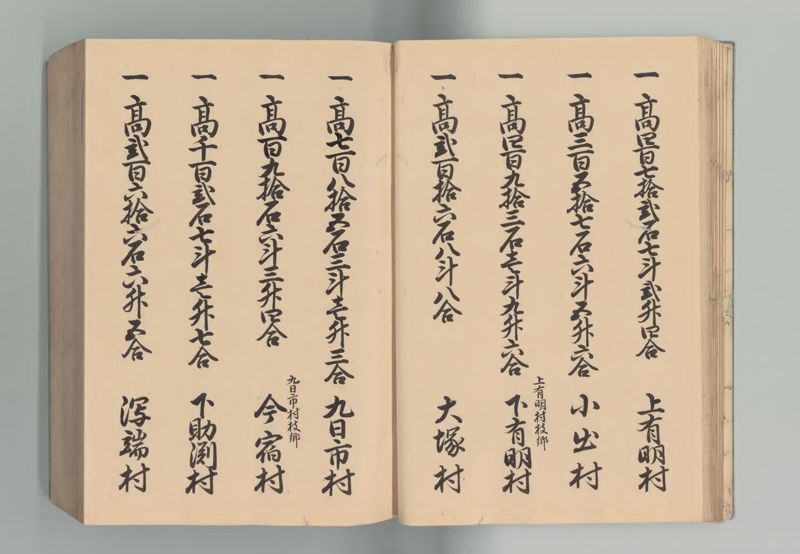 一 高四百七拾弐石七斗弐升四合 上有明村
一 高三百五拾七石六斗五升六合 小出村
上有明村枝郷
一 高四百九拾三石壱斗九升六合 下有明村
一 高弐百拾六石八斗八合 大塚村
一 高七百八拾五石三斗壱升三合 九日市村
九日市村枝郷
一 高百九拾石六斗三升四合 今宿村
一 高千百弐石七斗壱升七合 下助渕村
一 高弐百六拾六石六升五合 瀉端村